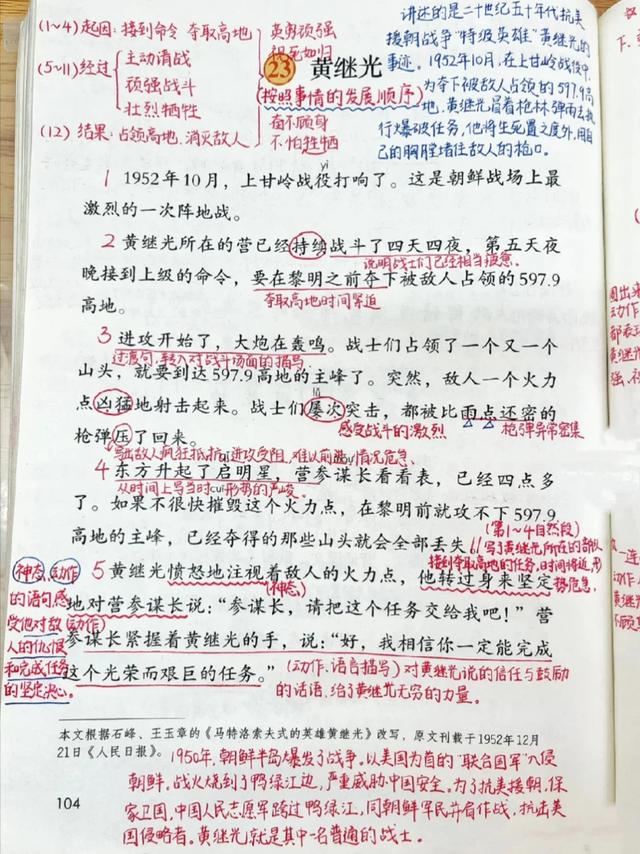 (1~4)起因:接到命令 夺取高地
英勇顽强
视死如归
(5~11)经过
主动请战
顽强战斗
壮烈牺牲
奋不顾身
不怕牺牲
(12)结果:占领高地、消灭敌人
讲述的是二十世纪五十年代抗美
援朝战争“特级英雄”黄继光的
事迹。1952年10月,在上甘岭战役中,
为夺下被敌人占领的597.9高
地,黄继光冒着枪林弹雨去执
行爆破任务,他将生死置之度外,用自
己的胸膛堵住敌人的枪口。
23 黄继光
(按照事情的发展顺序)
yì
1 1952年10月,上甘岭战役打响了。这是朝鲜战场上最
激烈的一次阵地战。
2 黄继光所在的营已经持续战斗了四天四夜,第五天夜
说明战士们已经相当疲惫。
晚接到上级的命令,要在黎明之前夺下被敌人占领的597.9
夺取高地时间紧迫
高地。
3 进攻开始了,大炮在轰鸣。战士们占领了一个又一个
过渡句,转入对战斗场面的描写
山头,就要到达597.9高地的主峰了。突然,敌人一个火力
点凶猛地射击起来。战士们屡次突击,都被比雨点还密的
感受战斗的激烈
枪弹异常密集
枪弹压了回来。
写出敌人疯狂抵抗,进攻受阻,难以前进,情况危急。
4 东方升起了启明星,营参谋长看看表,已经四点多
从时间上写当时形势的严峻
cuī
了。如果不很快摧毁这个火力点,在黎明前就攻不下597.9
高地的主峰,已经夺得的那些山头就会全部丢失。
(第1~4自然段)
写了黄继光所在的部队
接到夺取高地的任务,时间将近,形
势危急。
5 黄继光愤怒地注视着敌人的火力点,他转过身来坚定
(神态)
地对营参谋长说:“参谋长,请把这个任务交给我吧!”营
(动作)
参谋长紧握着黄继光的手,说:“好,我相信你一定能完成
这个光荣而艰巨的任务。”
(动作、语言描写)对黄继光说的信任与鼓励
的话语,给了黄继光无穷的力量。
神态、动作
的语句感
受他对敌
人的仇恨
和完成任务
的坚定决心。
本文根据石峰、王玉章的《马特洛索夫式的英雄黄继光》改写,原文刊载于1952年12月
21日《人民日报》。
1950年,朝鲜半岛爆发了战争。以美国为首的“联合国军”入侵
朝鲜。战火烧到了鸭绿江边,严重威胁中国安全。为了抗美援朝、保
家卫国,中国人民志愿军跨过鸭绿江,同朝鲜军民并肩作战,抗击美
国侵略者。黄继光就是其中一名普通的战士。
104